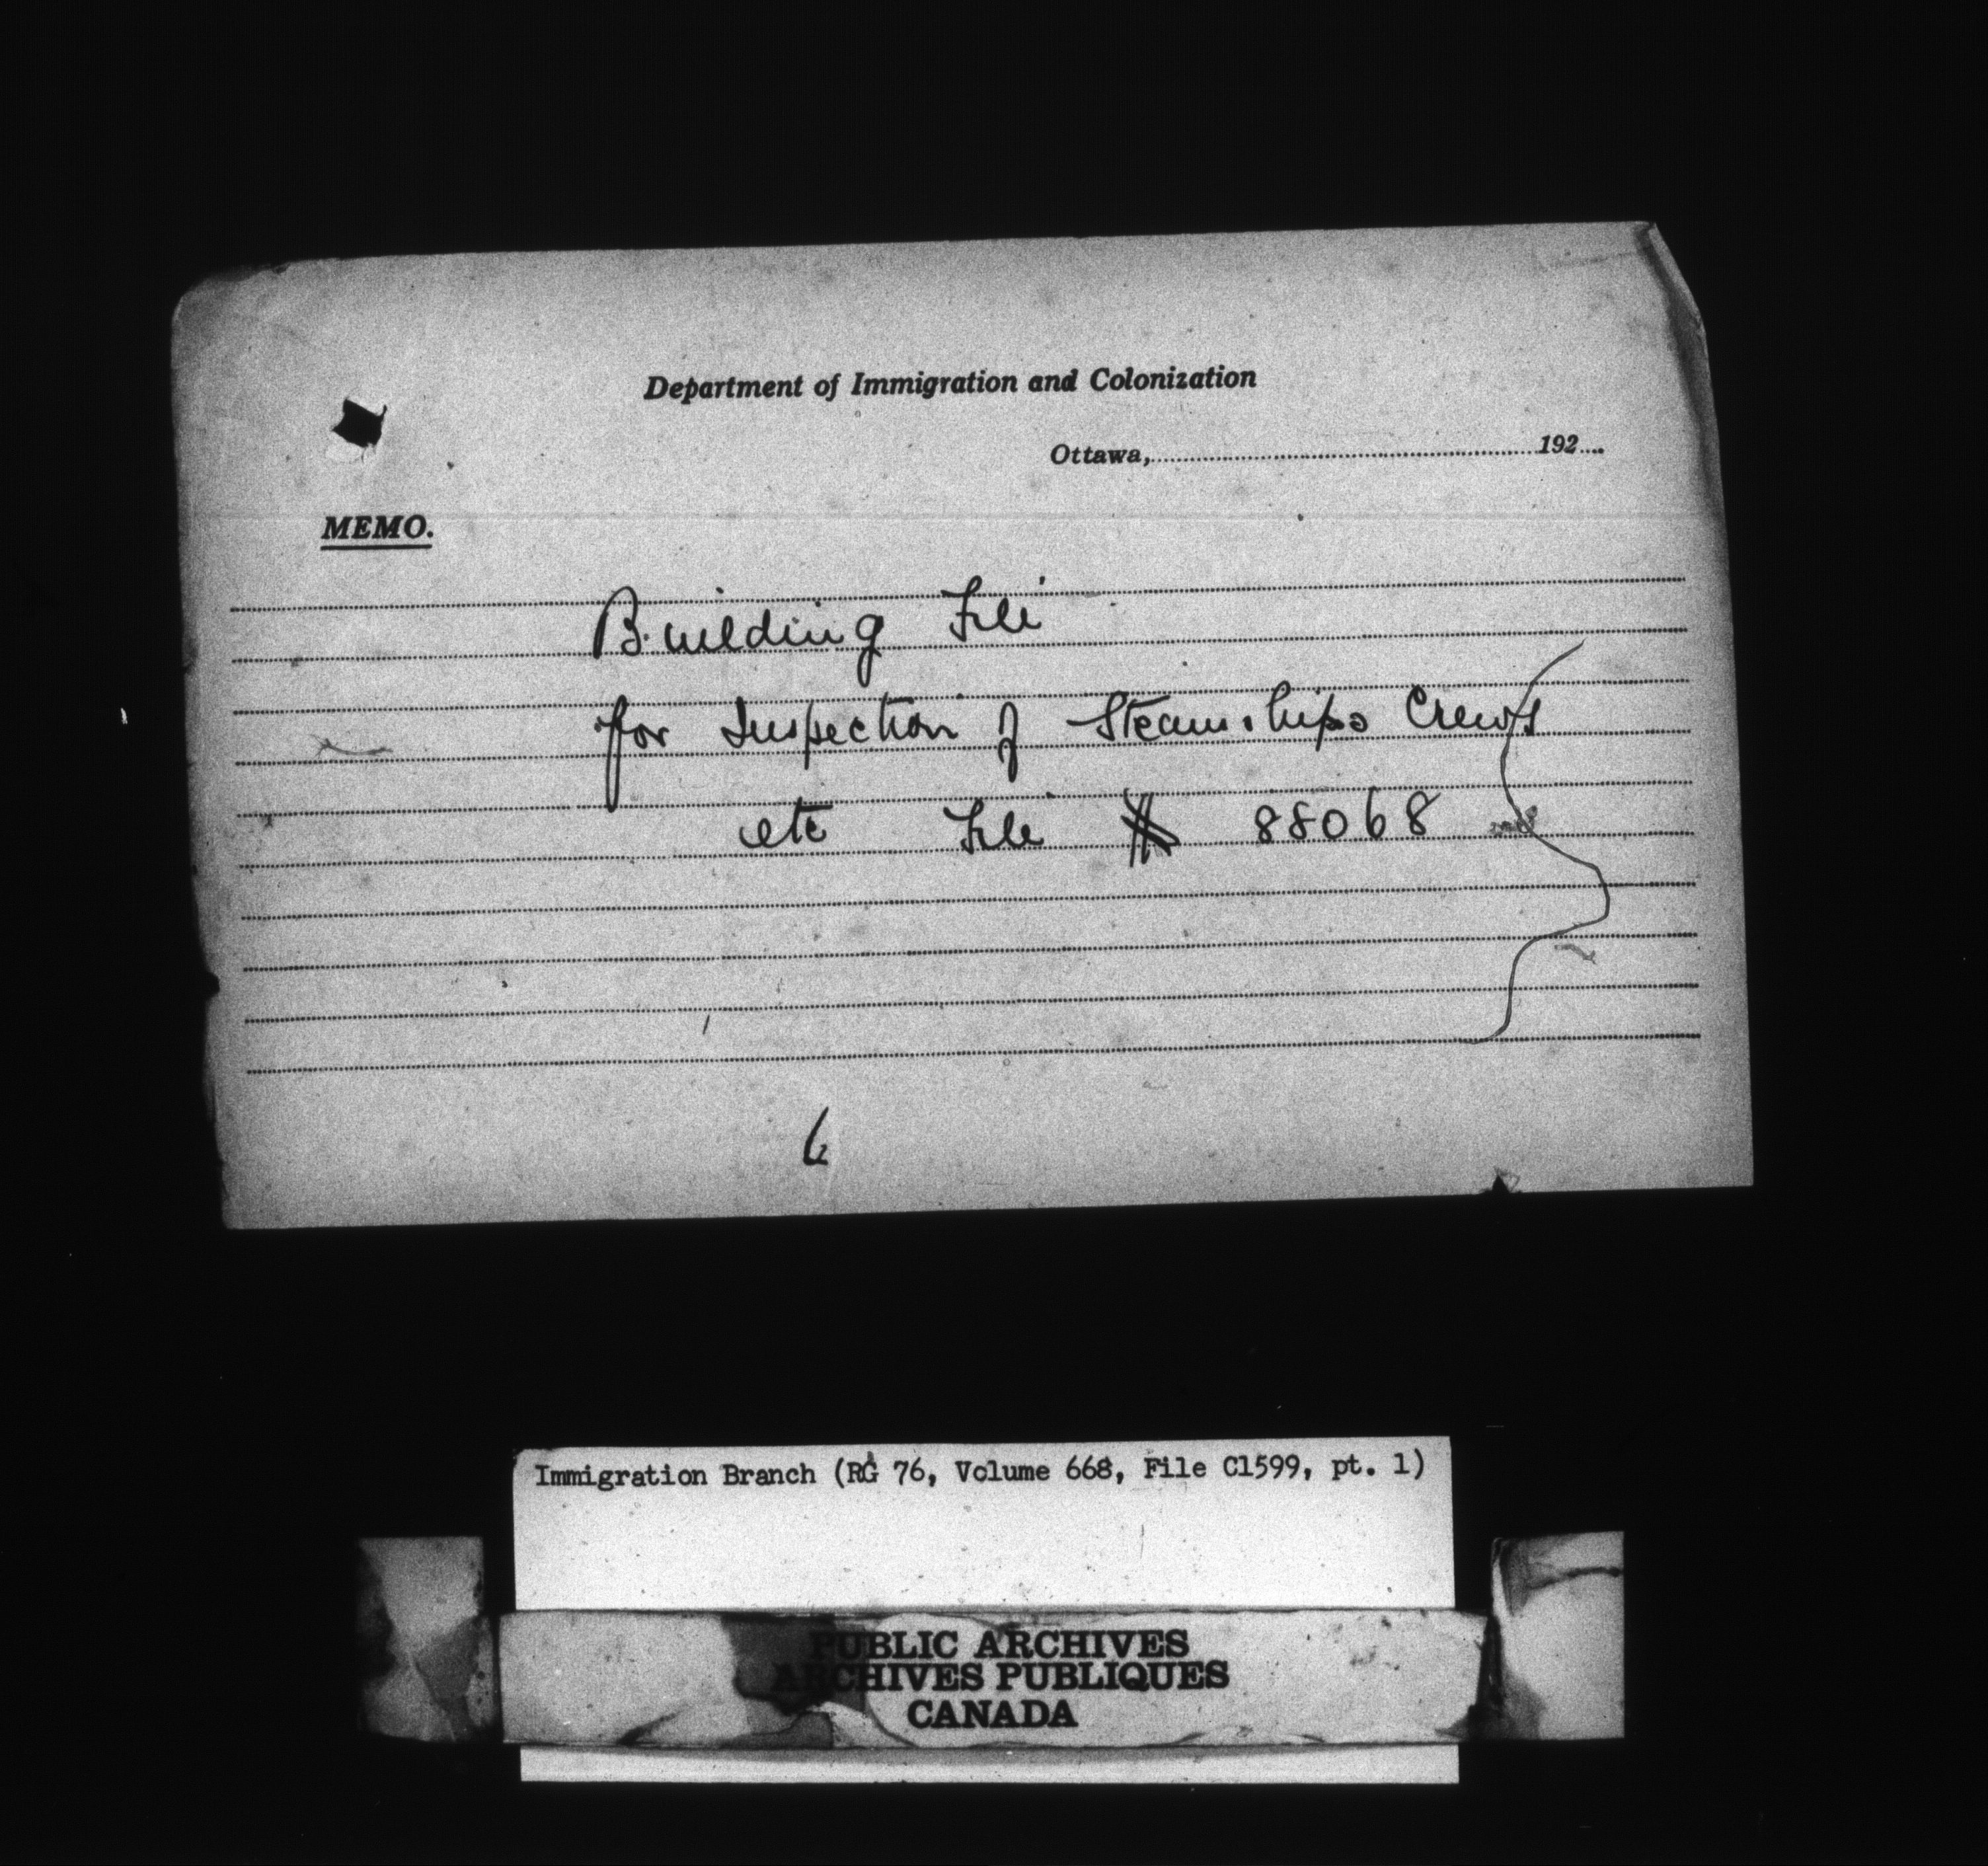 Department of Immigration and Colonization
Ottawa,..........192....
MEMO.
Building File
for Inspection of Steamships Crews
etc File # 88068
6
Immigration Branch (RG 76, Volume 668, File C1599, pt. 1)
PUBLIC ARCHIVES
ARCHIVES PUBLIQUES
CANADA